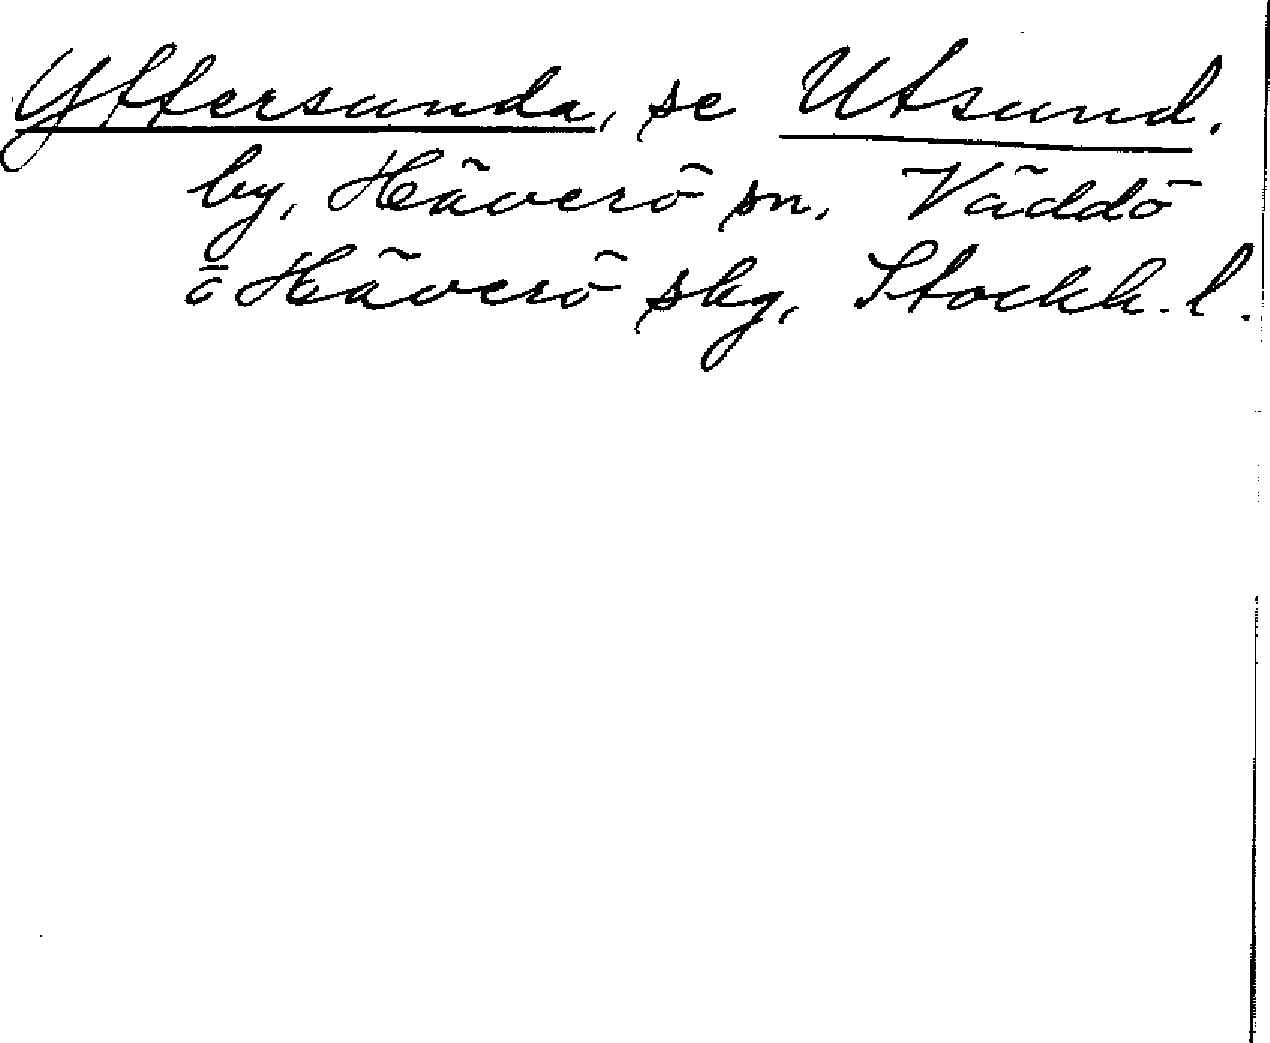 Yttersunda, se Utsund.
by, Häverö sn, Väddö
o Häverö skg, Stockh. l.